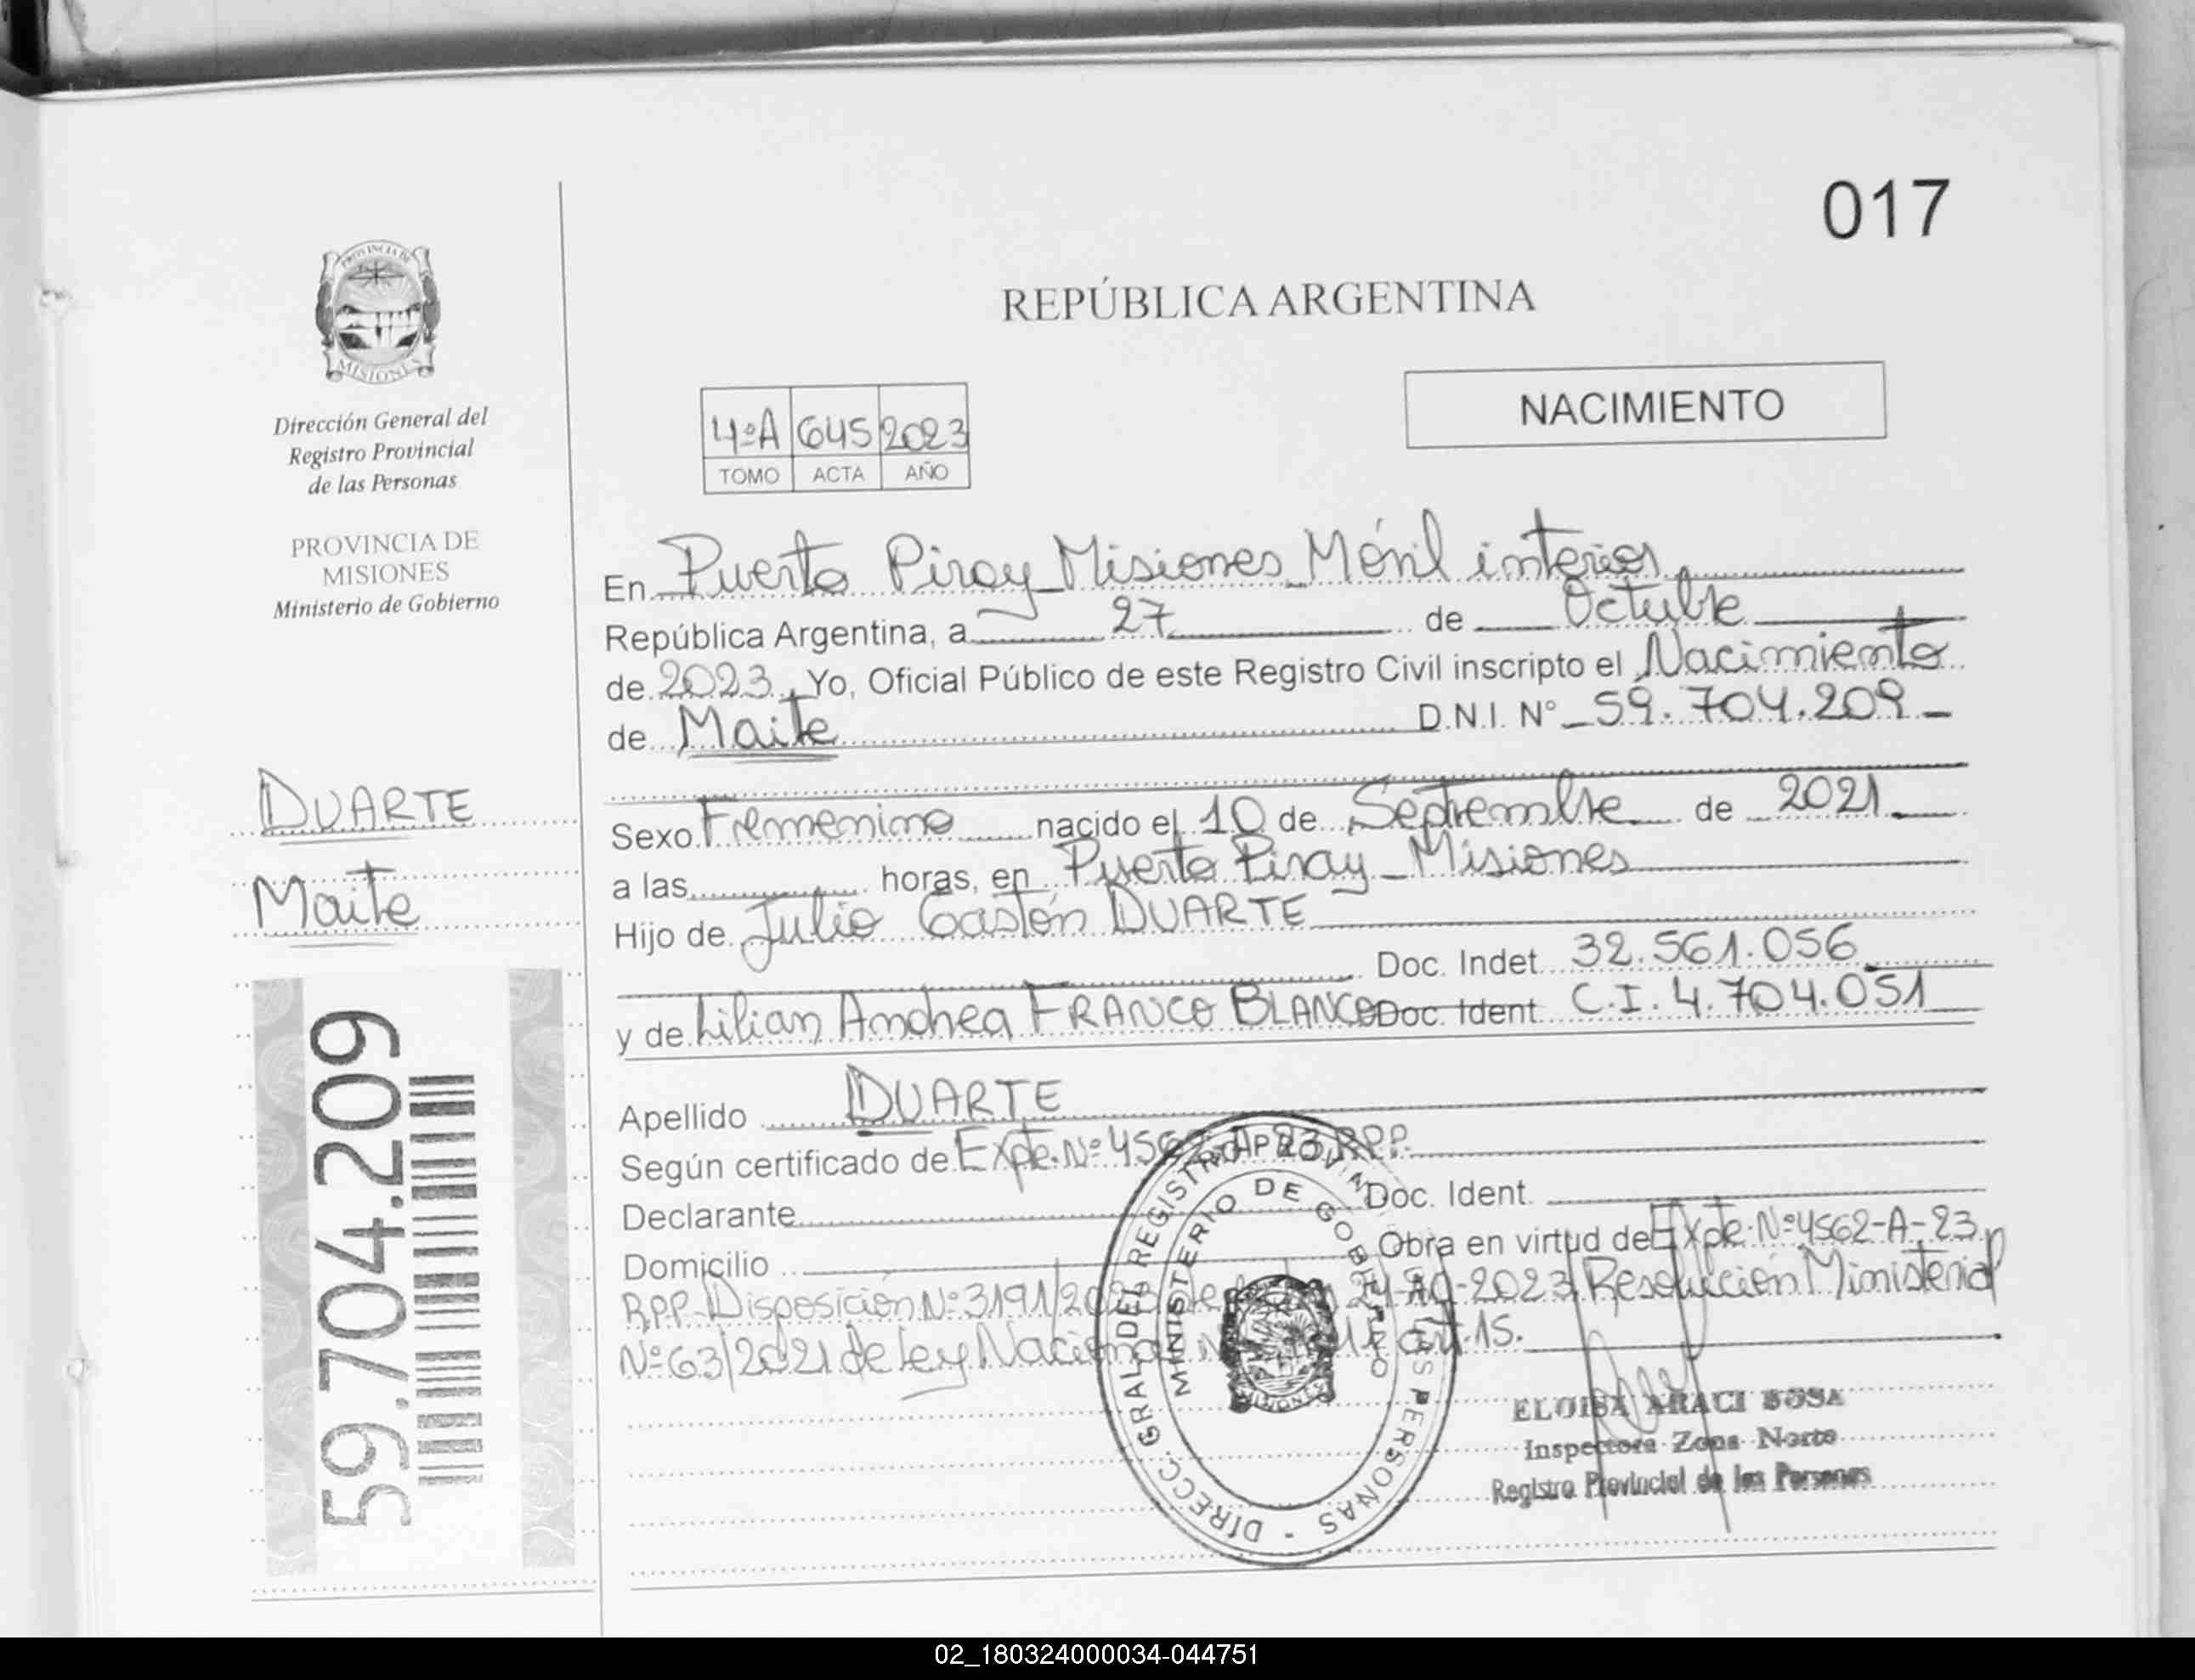 017
PROVINCIA DE
MISIONES
Dirección General del
Registro Provincial
de las Personas
PROVINCIA DE
MISIONES
Ministerio de Gobierno
DUARTE
Maite
59.704.209
REPÚBLICA ARGENTINA
NACIMIENTO
4ºA 645 2023
TOMO ACTA AÑO
En Puerto Piray_Misiones_Móvil interior
República Argentina, a 27 de Octubre
de 2023. Yo, Oficial Público de este Registro Civil inscripto el Nacimiento
de Maite D.N.I. N° 59.704.209
Sexo Femenino nacido el 10 de Septiembre de 2021
a las horas, en Puerto Piray_Misiones
Hijo de Julio Gastón DUARTE
Doc. Indet. 32.561.056
y de Lilian Andrea FRANCO BLANCO Doc. Ident. C.I. 4.704.051
Apellido DUARTE
Según certificado de Expte. Nº 4562-A-23 RPP.
Declarante Doc. Ident.
Domicilio Obra en virtud de Expte. Nº 4562-A-23
RPP-Disposición Nº 3191/2023 de 24-AG-2023 Resolución Ministerial
Nº 63/2021 de ley Nacional art. 15.
DIRECC. GRAL. DEL REGISTRO PROVINCIAL DE LAS PERSONAS
MINISTERIO DE GOBIERNO
MISIONES
ELOISA ARACI SOSA
Inspectora Zona Norte
Registro Provincial de las Personas
02_180324000034-044751